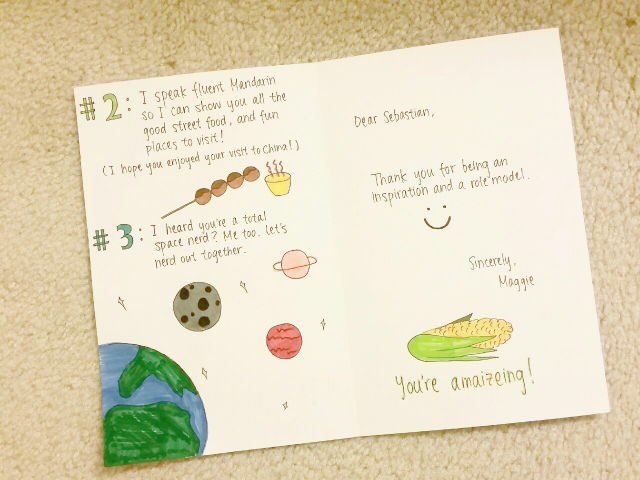 #2: I speak fluent Mandarin
so I can show you all the
good street food, and fun
places to visit!
(I hope you enjoyed your visit to China!)
#3: I heard you're a total
space nerd? Me too. Let's
nerd out together.
Dear Sebastian,
Thank you for being an
inspiration and a role model.
Sincerely,
Maggie
You're amaizeing!